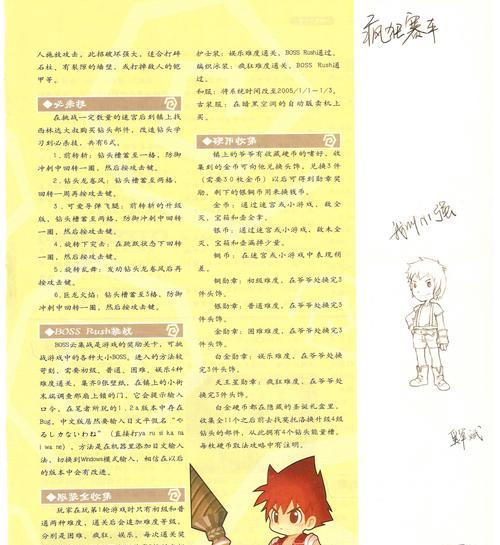 人施放攻击。此招破坏强大，适合打碎
石柱、有裂隙的墙壁，或打掉敌人的铠
甲等。
必杀技
在挑战一定数量的迷宫后到镇上找
西林达大叔购买钻头部件，改造钻头学
习到必杀技，共有6式。
1.前转斩：钻头槽蓄至一格，防御
冲刺中回转一圈，然后按攻击键。
2.钻头龙卷风：钻头槽蓄至两格，
回转一周再按攻击键。
3.可爱导弹飞腿：前转斩的升级版
，钻头槽蓄至两格，防御冲刺中回转
一圈，然后按攻击键。
4.旋转下突击：在跳跃状态下回转
一周，然后按攻击键。
5.旋转乱舞：发动钻头龙卷风后再
按攻击键。
6.巨龙火焰：钻头槽蓄至3格，防御
冲刺中回转一圈，然后按攻击键。
BOSS Rush挑战
BOSS云集战是游戏的奖励关卡，可挑
战游戏中的各种大小BOSS。进入的方法较
苛刻，需要初级、普通、困难、娱乐4种
难度通关，集齐9张壁纸，在镇上的小街
末端调查那扇上锁的门，它会提示输入
口令。在笔者所玩的1.2a版本中存在
Bug，中文版居然要输入日文平假名“や
るしかないわね”（直接打ya ru si ka na
i wa ne）。方法是在机器里添加日文输入
法，切换到Windows模式输入，相信在以后
的版本中会有改进。
服装全收集
玩家在玩第1轮游戏时只有初级和普
通两种难度，通关后会追加难度等级，
分别是困难、疯狂、娱乐。每次通关奖
护士装：娱乐难度通关、BOSS Rush通过。
编织泳装：疯狂难度通关、BOSS Rush通
过。
和服：将系统时间改至2005/1/1－1/3。
古装服：在暗黑空洞的自动贩卖机上
买。
硬币收集
镇上的爷爷有收藏硬币的嗜好，收
集到的金币可向他兑换头饰，兑换3件
（需要30枚金币）以后可得到勋章奖
励，剩下的银铜币用来换钱币。
金币：通过迷宫或小游戏，敌全
灭，宝箱和壶全拿。
银币：通过迷宫或小游戏，敌未全
灭，宝箱和壶漏掉少量。
铜币：在迷宫或小游戏中表现稍
差。
铜勋章：初级难度，在爷爷处换完3
件头饰。
银勋章：普通难度，在爷爷处换完3
件头饰。
金勋章：困难难度，在爷爷处换完3
件头饰。
白金勋章：娱乐难度，在爷爷处换
完3件头饰。
天王星勋章：疯狂难度，在爷爷处
换完3件头饰。
白金硬币都在隐藏的圣诞礼盒里，
收集全11个之后前去找莫托洛换升级4级
钻头的部件，从此拥有4个钻头能量槽。
每枚硬币取法攻略中有注明。
疯狂赛车